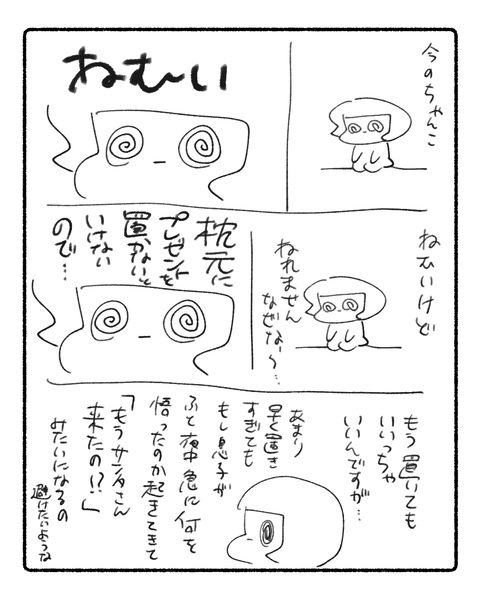 今のちゃんこ
ねむ〜い
ねむいけど
ねれません
なぜなら…
枕元に
プレゼントを
置かないと
いけない
ので…
もう置いても
いいっちゃ
いいんですが…
あまり
早く置き
すぎても
もし息子が
ふと夜中急に何を
悟ったのか起きてきて
「もうサンタさん
来たの!?」
みたいになるの
避けたいような